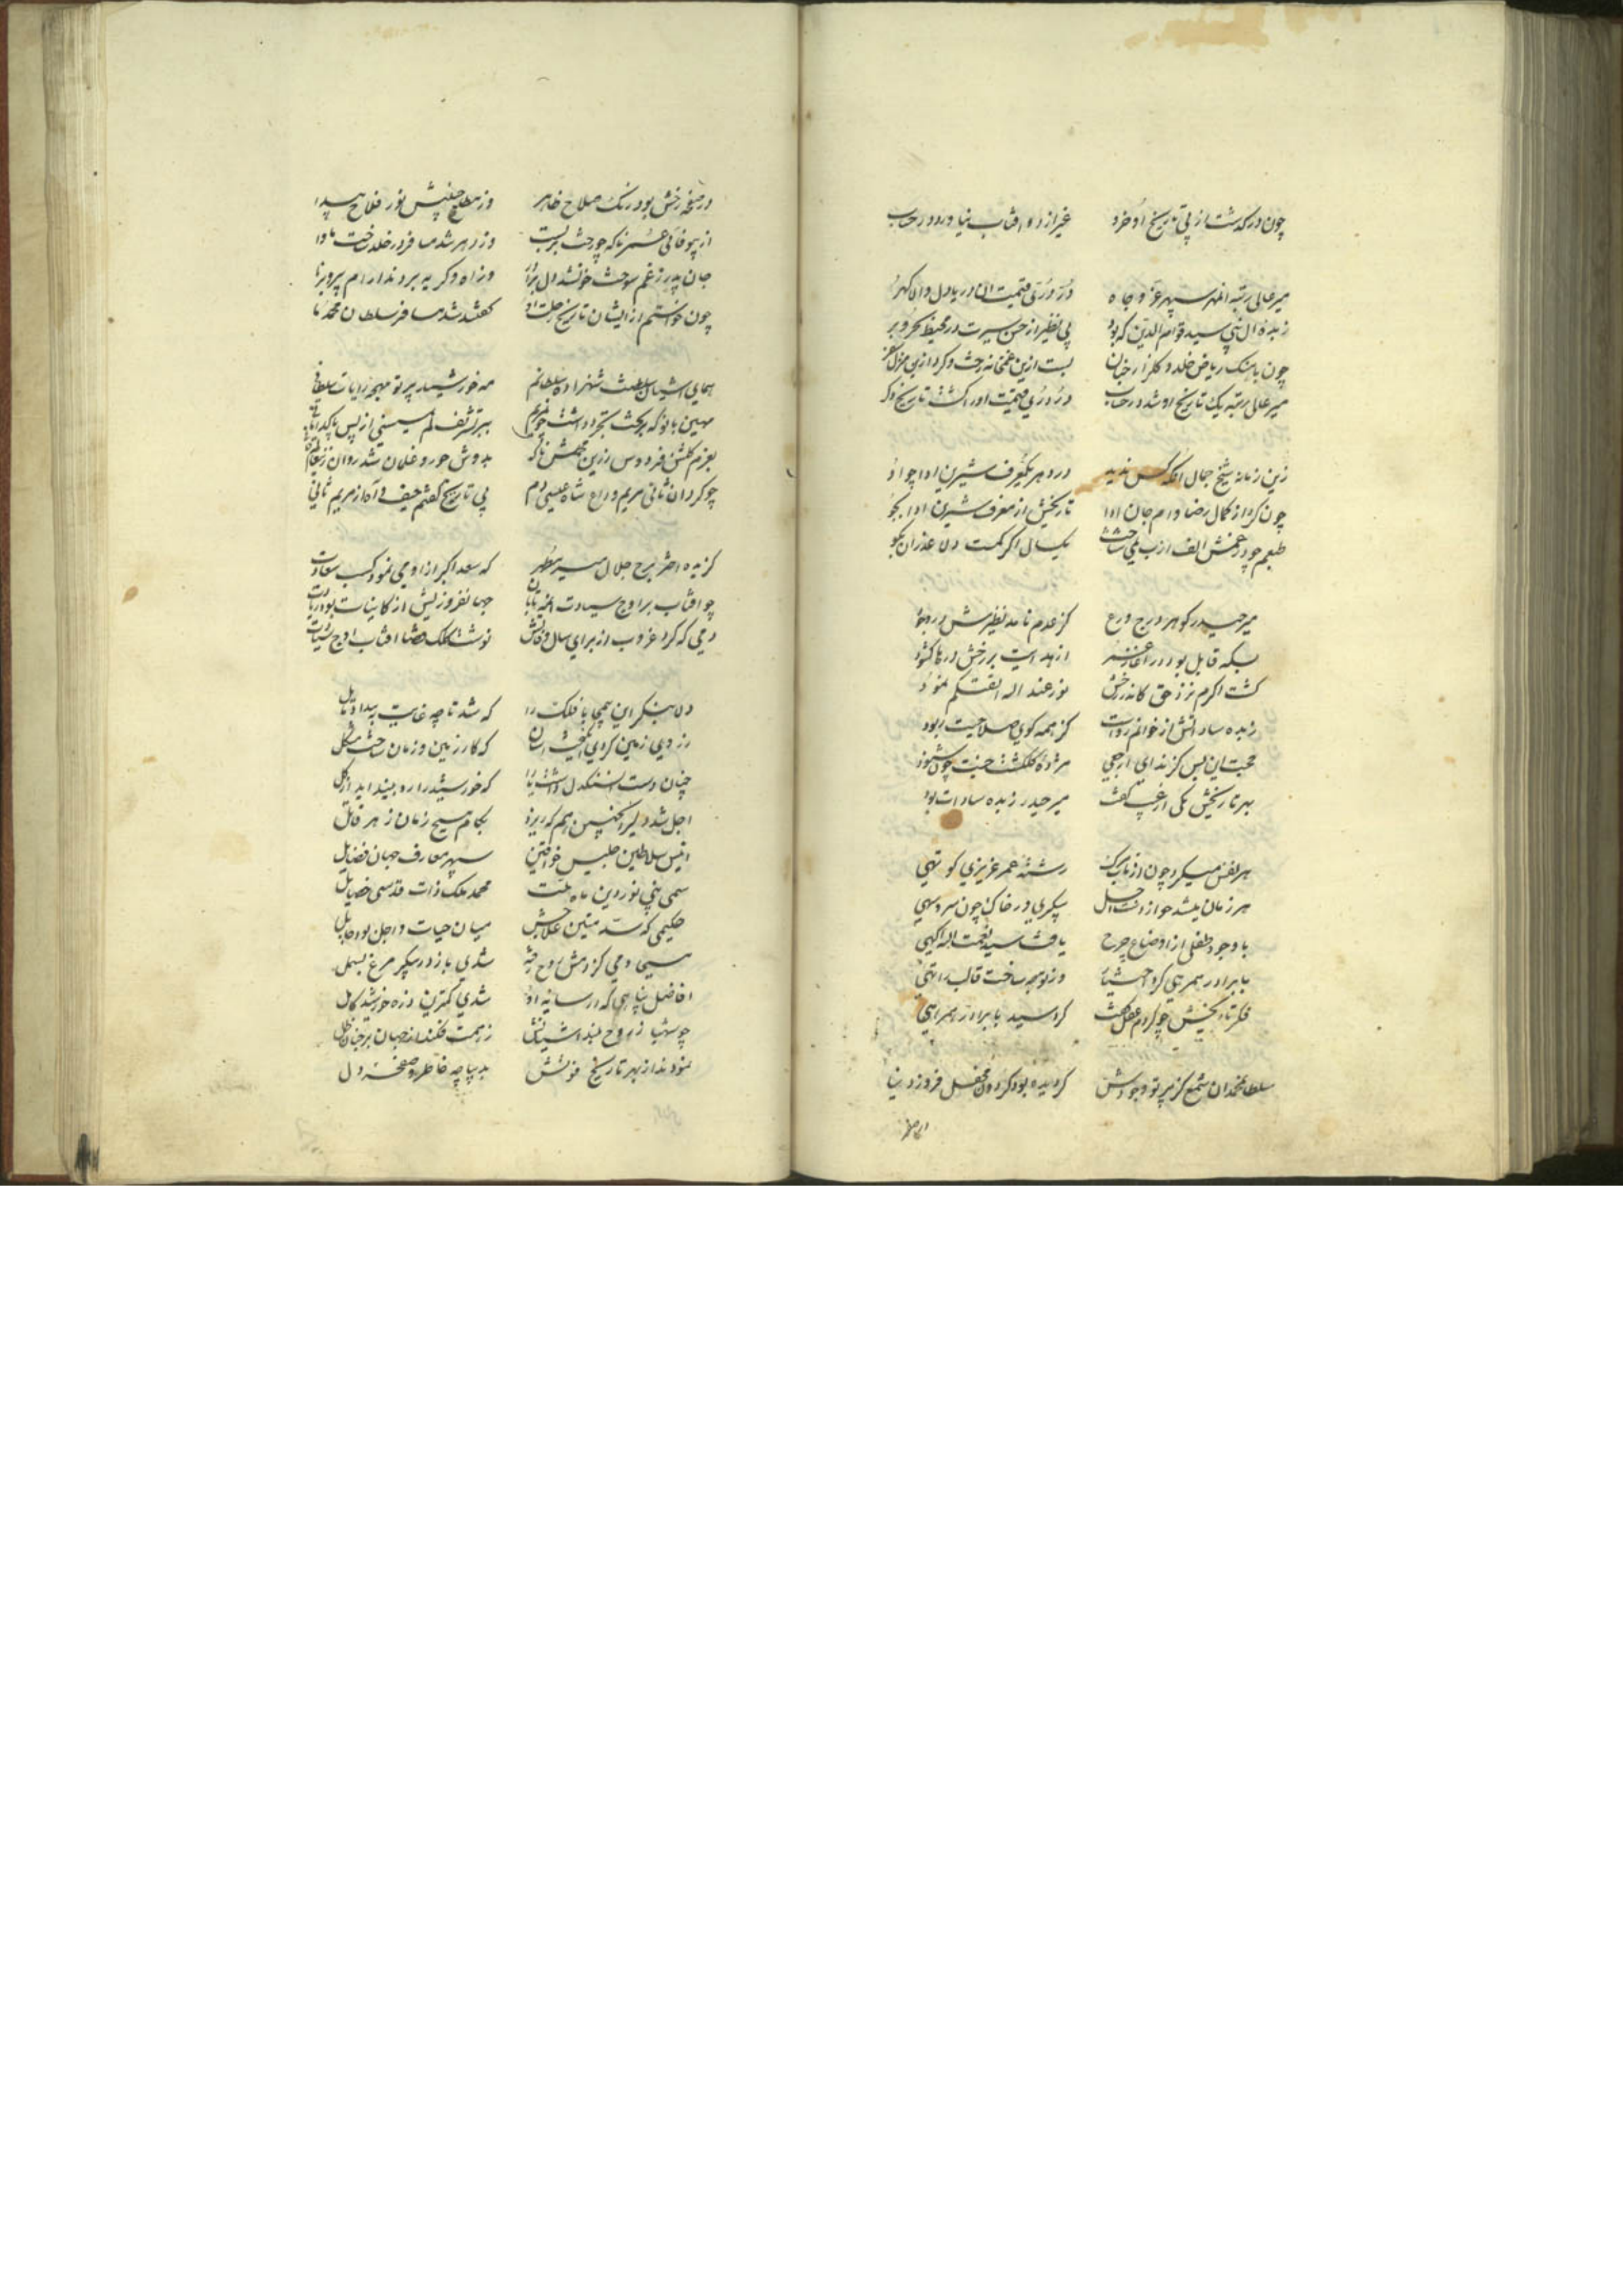 چون درگذشت از پی تاریخ او خرد غیر از ده افتاب نیاورد در حساب
میر عالی رتبه انمهر سپهر عز و جاه در دری قیمت ان دریادل والا گهر
زبده ال نبی سید قوام الدین که بود بی نظیر از حسن سیرت در محیط بحر و بر
چون باهنگ ریاض خلد و گلزار جنان بست ازین غمخانه رخت و کرد ازین منزل
میر عالی رتبه یک تاریخ او شد در حساب در دری قیمت اورا گشت تاریخ
زین زمانه شیخ جمال انکه کس ندید در دهر یکعرف شیرین ادا چو او
چون کرد از کمال رضا وام جان ادا تاریخش از معرف شیرین ادا بجو
طبعم چو در غمش الف از ب نمی شناخت یکسال اگر کمست دلا عذر ان بگو
میر حیدر گوهر درج ورع کز عدم نامد نظیرش در وجود
بسکه قابل بود در از هدایت بر رخش درها گشود
گشت اکرم نزد حق کاندر رخش نور عند اله اتقیکم نمود
زبده ساداتش از خوانم رواست کز همه گوی صلاحیت ربود
محبت این بس کز ندای ارجعی مژده گلگشت جنت چون شنود
بهر تاریخش یکی از غیب گفت میر حیدر زبده سادات بود
هر نفس میکرد چون از تاب مرگ رشته عمر عزیزی کوتهی
هر زمان میشد چو از دست اجل پیکری در خاک چون سرو سهی
با وجود طفلی از اوضاع چرخ یافت سید نعمت اله اگهی
با برادر همرهی کرد اختیار وز توجه ساخت قالب را تهی
فکر تاریخش چو کردم عقل گفت کرد سید با برادر همراهی
سلطان محمد ان شمع کز پرتو وجودش گردیده بود گردون محفل فروز دنیا
در صفحه
در صفحه رخش بود رنگ صلاح ظاهر وز مطلع جبینش نور فلاح پیدا
از بیوفائی عمر ناگه چو رخت بربست وز دهر شد مسافر در خلد ساخت ماوا
جان پدر ز غم سوخت خونشد دل برادر وز اه و گریه بردند ارام پیر و برنا
چون خواستم از ایشان تاریخ رحلت او گفتند شد مسافر سلطان محمد ما
همای اشیان سلطنت شهزاده سلطانم مه خورشید پرتو مهجه رایات سلطانی
مهین بانو که بر تخت تجرد داشت چون مریم
بعزم گلشن فردوس ازین ناگه بدوش حور و غلمان شد روان
چو کرد ان ثانی مریم وداع شاه عیسی دم پی تاریخ گفتم حیف و اه از مریم ثانی
گزیده اختر برج جلال میر مطهر که سعد اکبر ازو می نمود کسب سعادت
چو افتاب بر اوج سیادت
دمی که کرد غروب از برای سال وفاتش نوشت کلک قضا افتاب اوج سیادت
دلا بنگر این فلک را که شد تا چه غایت به بیداد مایل
ز دی بر زمین کردی که کار زمین و زمان ساخت مشکل
چنان دست که خورشید را ره ببنداید از گل
اجل شد دلیر انچنین هم که ریزد بکام مسیح زمان زهر قاتل
انیس سلاطین جلیس خواقین سپهر معارف جهان فضایل
سمی نبی نور دین ماه ملت محمد ملک ذات قدسی خصایل
حکیمی که سد متین علاجش میان حیات و اجل بود حایل
مسیحا دمی کز دمش روح رفته شدی باز در پیکر مرغ بسمل
افاضل پناهی که در سایه او شدی کمترین ذره خورشید کامل
چو شهباز روح بلند اشیانش ز همت فکند از جهان بر جنان ظل
نمودند از بهر تاریخ فوتش بدیباچه خاطر و صفحه دل